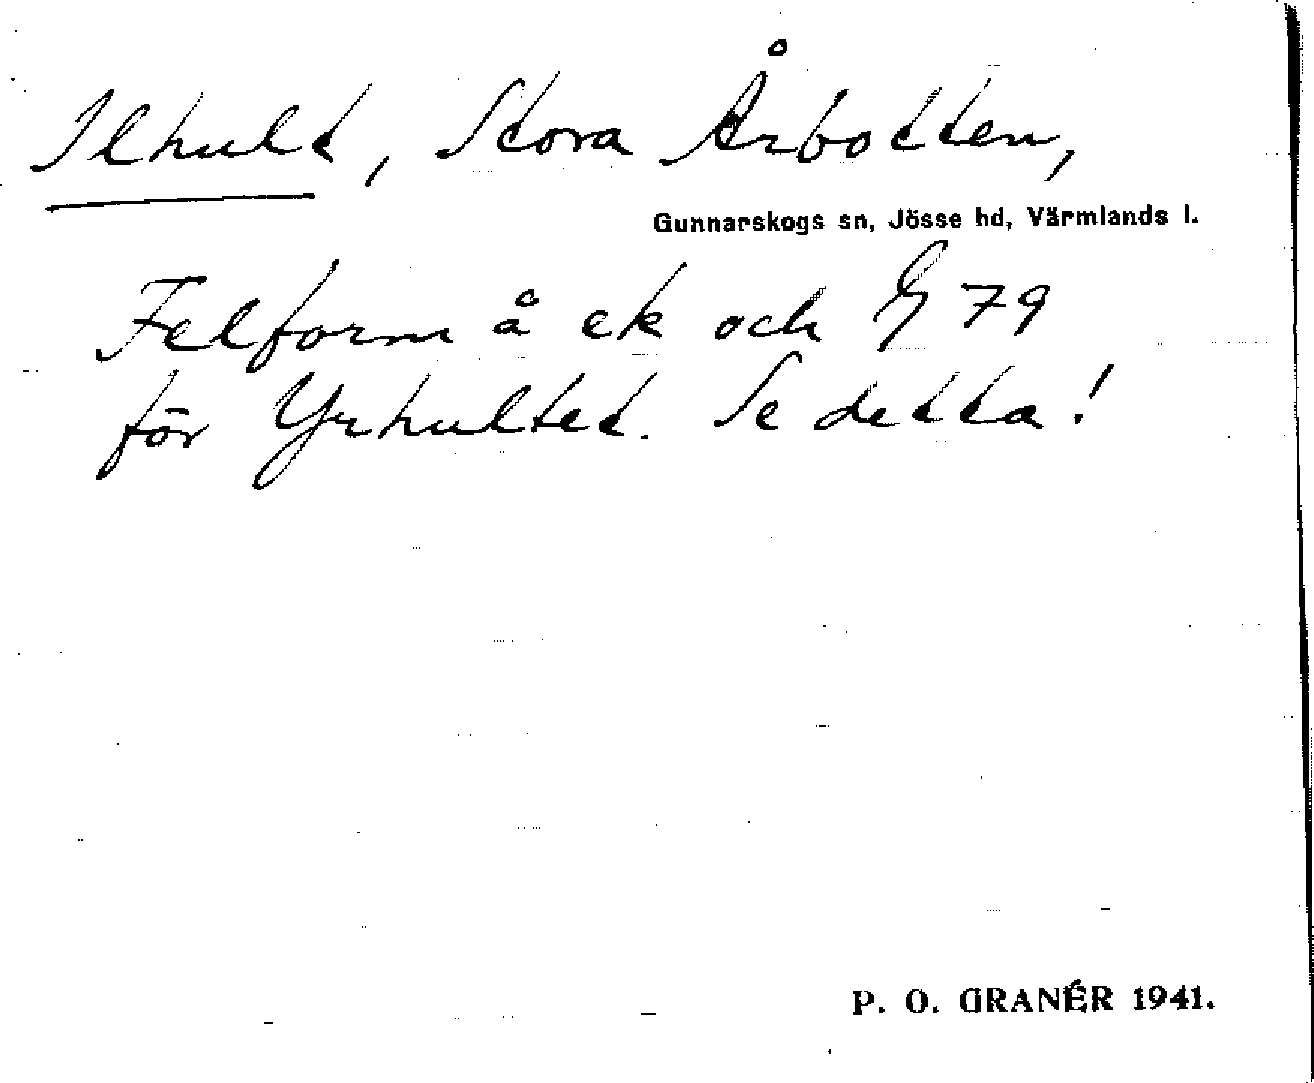 Ilhult, Stora Årbotten,
Gunnarskogs sn, Jösse hd, Värmlands l.
Felform å ek och G 79
för Yrhultet. Se detta!
P. O. GRANÉR 1941.